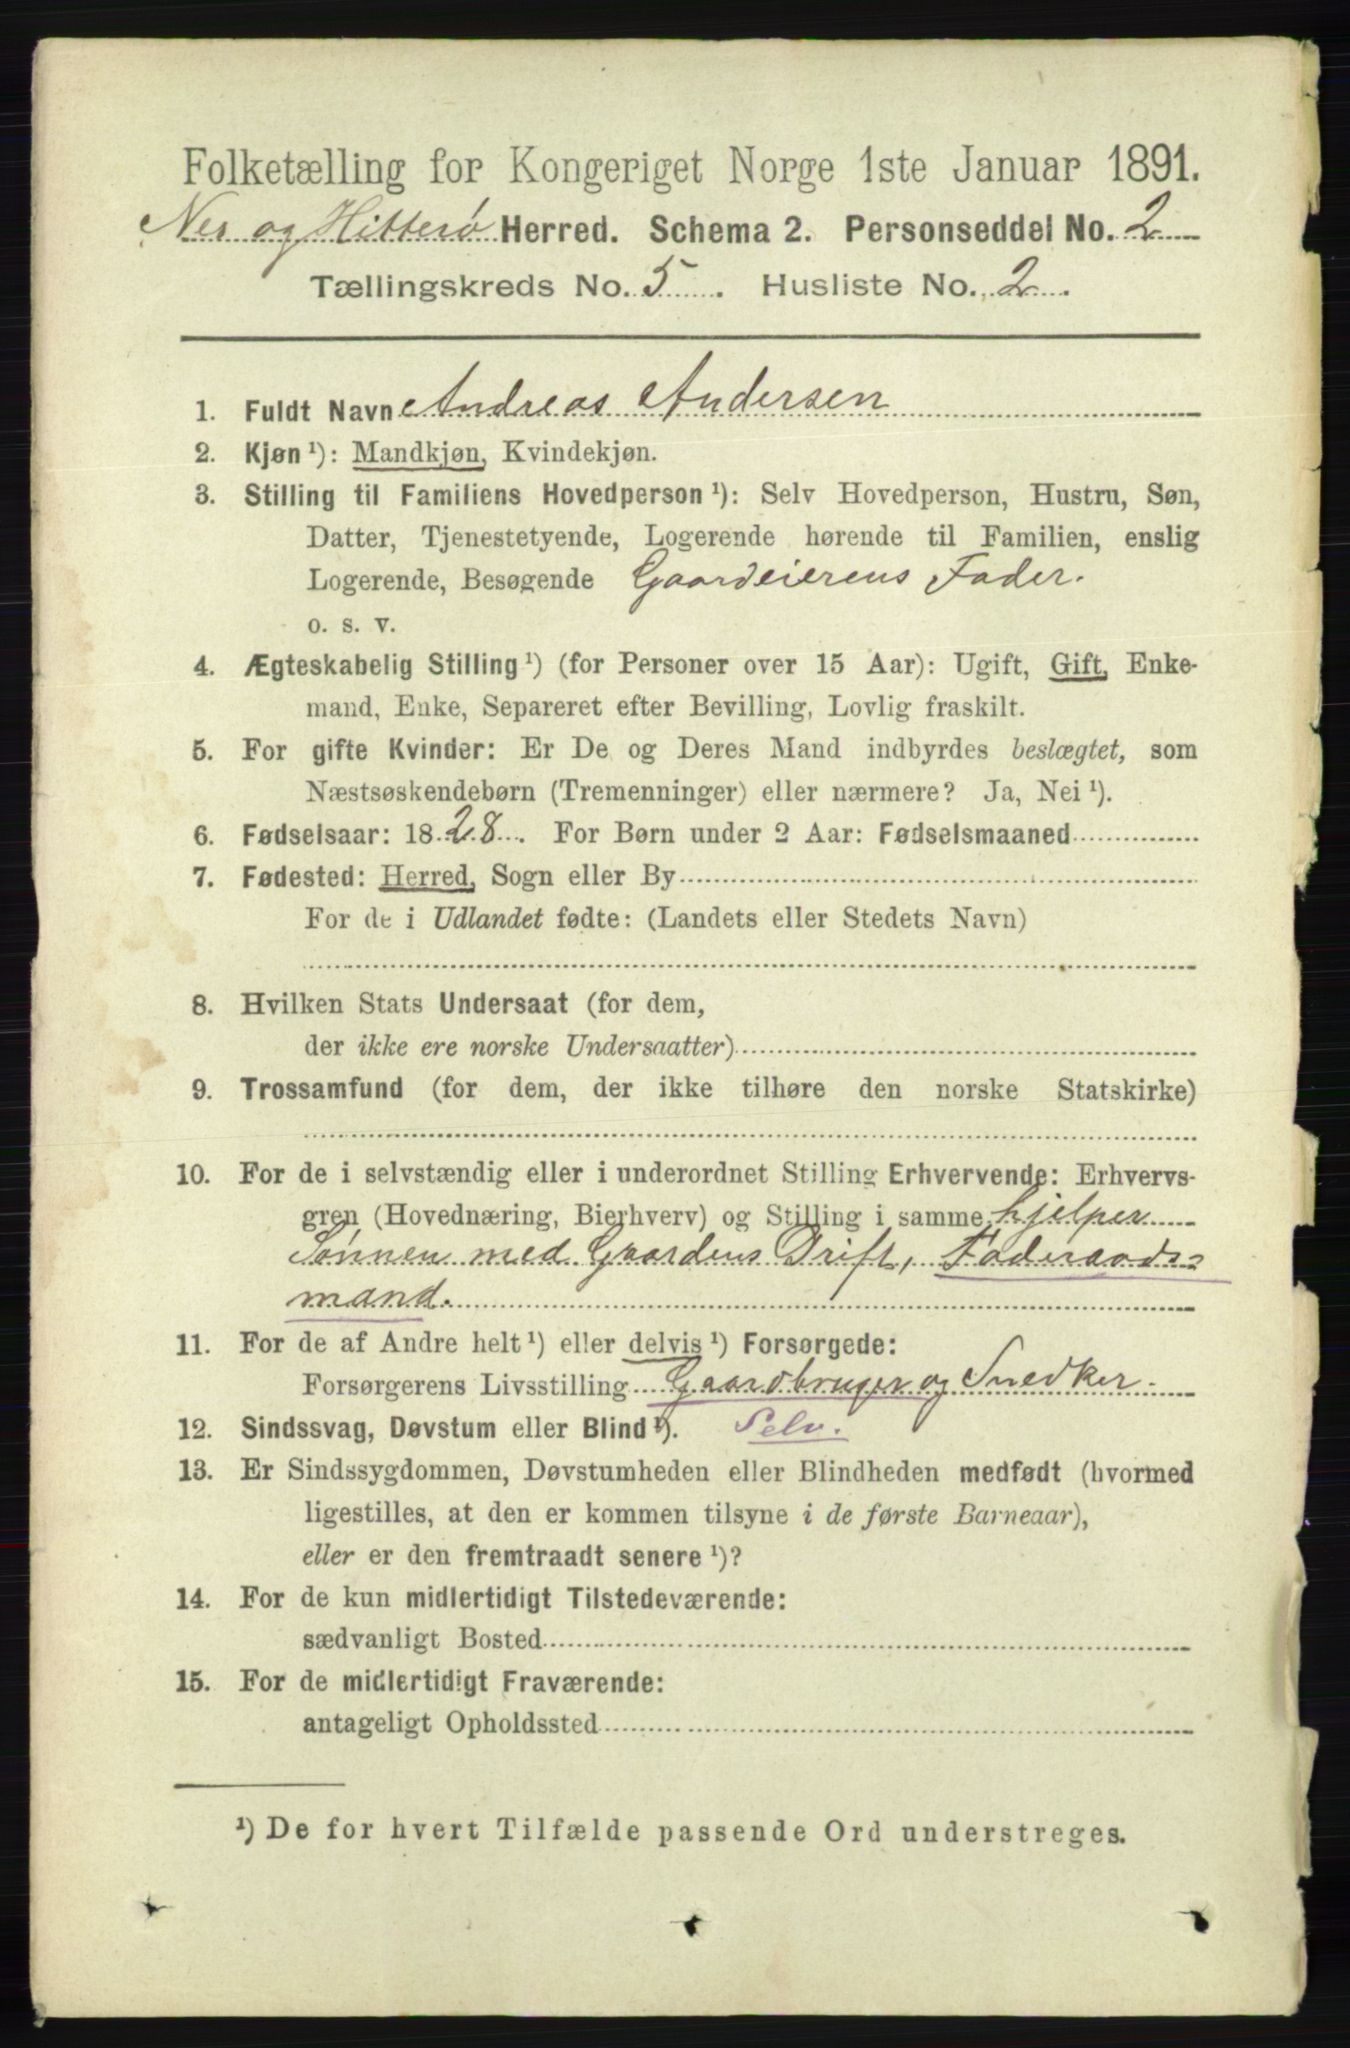 Folketælling for Kongeriget Norge 1ste Januar 1891.
Nes og Hitterø Herred. Schema 2. Personseddel No. 2
Tællingskreds No. 5. Husliste No. 2.
1. Fuldt Navn Andreas Andersen
2. Kjøn ¹): Mandkjøn, Kvindekjøn.
3. Stilling til Familiens Hovedperson ¹): Selv Hovedperson, Hustru, Søn,
Datter, Tjenestetyende, Logerende hørende til Familien, enslig
Logerende, Besøgende Gaardeierens Fader.
o. s. v.
4. Ægteskabelig Stilling ¹) (for Personer over 15 Aar): Ugift, Gift, Enke-
mand, Enke, Separeret efter Bevilling, Lovlig fraskilt.
5. For gifte Kvinder: Er De og Deres Mand indbyrdes beslægtet, som
Næstsøskendebørn (Tremenninger) eller nærmere? Ja, Nei ¹).
6. Fødselsaar: 1828. For Børn under 2 Aar: Fødselsmaaned
7. Fødested: Herred, Sogn eller By
For de i Udlandet fødte: (Landets eller Stedets Navn)
8. Hvilken Stats Undersaat (for dem,
der ikke ere norske Undersaatter)
9. Trossamfund (for dem, der ikke tilhøre den norske Statskirke)
10. For de i selvstændig eller i underordnet Stilling Erhvervende: Erhvervs-
gren (Hovednæring, Bierhverv) og Stilling i samme hjelper
Sønnen med Gaardens Drift, Føderaads-
mand.
11. For de af Andre helt ¹) eller delvis ¹) Forsørgede:
Forsørgerens Livsstilling Gaardbruger og Snedker.
12. Sindssvag, Døvstum eller Blind ¹). Selv.
13. Er Sindssygdommen, Døvstumheden eller Blindheden medfødt (hvormed
ligestilles, at den er kommen tilsyne i de første Barneaar),
eller er den fremtraadt senere ¹)?
14. For de kun midlertidigt Tilstedeværende:
sædvanligt Bosted
15. For de midlertidigt Fraværende:
antageligt Opholdssted
¹) De for hvert Tilfælde passende Ord understreges.